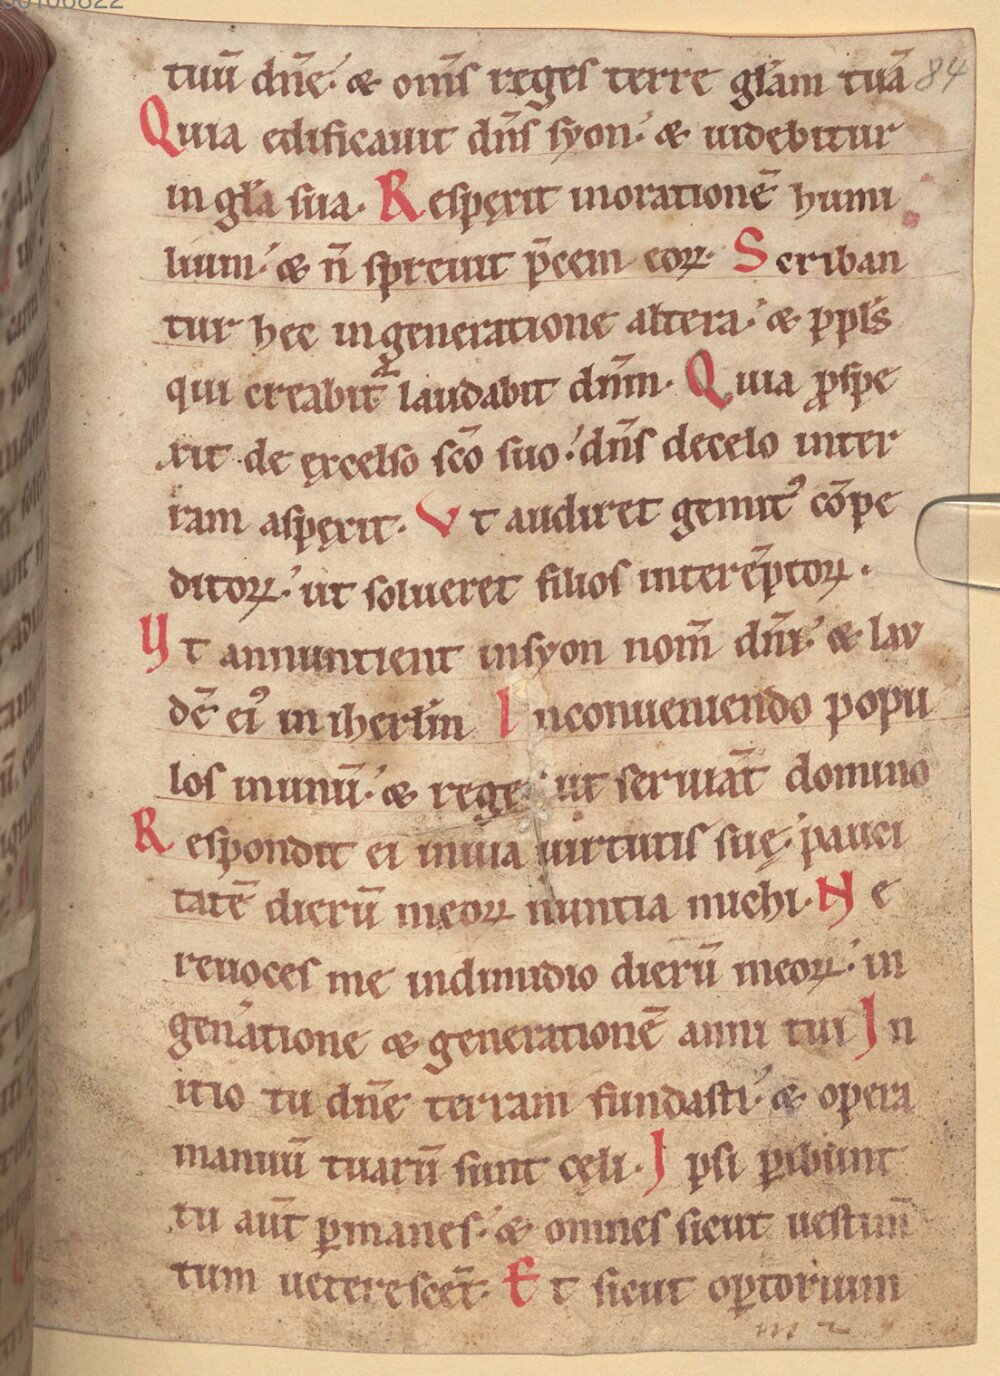 tuū dn̄e. & om̄s reges terre gl̄am tuā 84
Quia edificauit dn̄s syon. & uidebitur
in gl̄a sua. Respexit inorationē humi
lium. & n̄ spreuit p̄cem eoꝝ. Scriban
tur hec ingeneratione altera. & ppl̄s
qui creabit᷑ laudabit dn̄m. Quia ꝓspe
xit de excelso sc̄o suo. dn̄s decelo inter
ram aspexit. Vt audiret gemitꝰ cōpe
ditoꝝ. ut solueret filios interēptoꝝ.
Vt annuntient insyon nom̄ dn̄i. & lau
dē eiꝰ in iherl̄m Inconueniendo popu
los inunū. & reges ut seruiāt domino
Respondit ei inuia uirtutis suę. pauci
tatē dierū meoꝝ nuntia michi. Ne
reuoces me indimidio dierū meoꝝ. in
gen̄atione & generationē anni tui In
itio tu dn̄e terram fundasti. & opera
manuū tuarū sunt cęli. Ipsi ꝑibunt
tu aūt ꝑmanes. & omnes sicut uestim̄
tum ueterescēt. Et sicut oꝑtorium